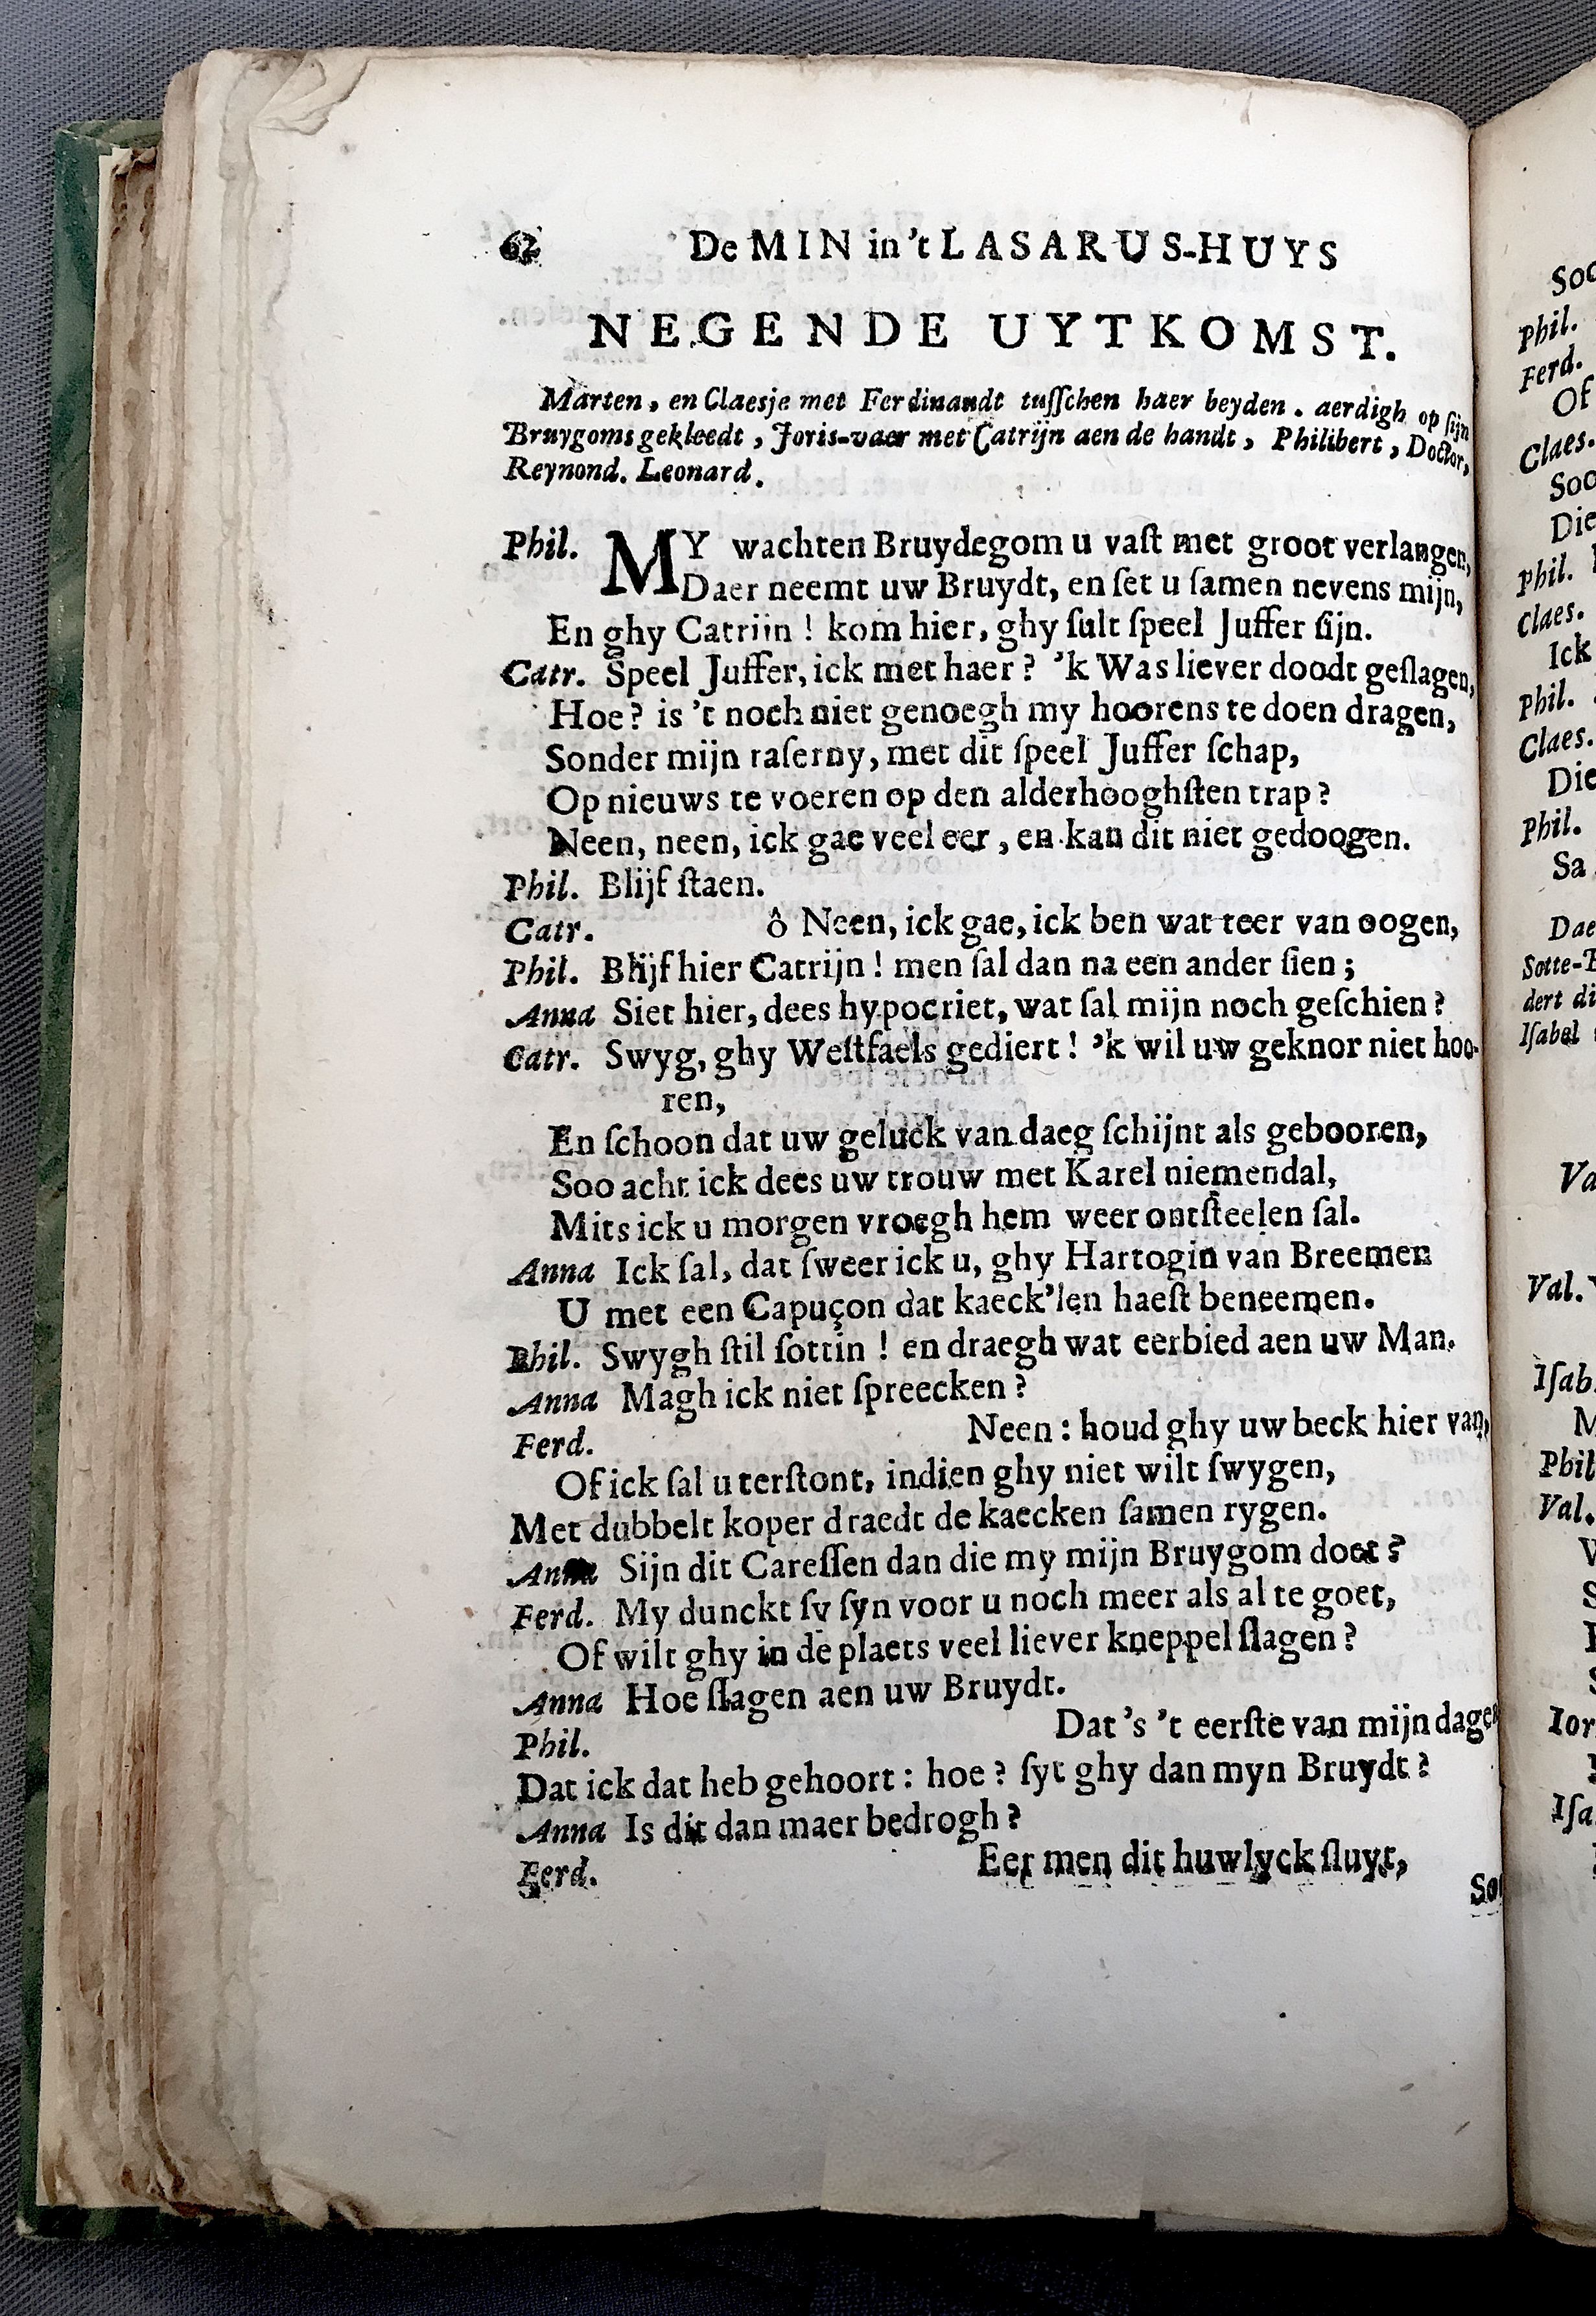 62 De MIN in 't LASARUS-HUYS
NEGENDE UYTKOMST.
Marten, en Claesje met Ferdinandt tusſchen haer beyden. aerdigh op ſijn
Bruygoms gekleedt, Joris-vaer met Catrijn aen de handt, Philibert, Doctor,
Reynond. Leonard.
Phil. MY wachten Bruydegom u vaſt met groot verlangen,
Daer neemt uw Bruydt, en ſet u ſamen nevens mijn,
En ghy Catriin ! kom hier, ghy ſult ſpeel Juffer ſijn.
Catr. Speel Juffer, ick met haer? 'k Was liever doodt geſlagen,
Hoe? is 't noch niet genoegh my hoorens te doen dragen,
Sonder mijn raſerny, met dit ſpeel Juffer ſchap,
Op nieuws te voeren op den alderhooghſten trap?
Neen, neen, ick gae veel eer, en kan dit niet gedoogen.
Phil. Blijf ſtaen.
Catr. ô Neen, ick gae, ick ben wat teer van oogen,
Phil. Blijf hier Catrijn! men ſal dan na een ander ſien;
Anna Siet hier, dees hypocriet, wat ſal mijn noch geſchien?
Catr. Swyg, ghy Weſtfaels gediert! 'k wil uw geknor niet hoo-
ren,
En ſchoon dat uw geluck van daeg ſchijnt als gebooren,
Soo acht ick dees uw trouw met Karel niemendal,
Mits ick u morgen vroegh hem weer ontſteelen ſal.
Anna Ick ſal, dat ſweer ick u, ghy Hartogin van Breemen
U met een Capuçon dat kaeck'len haeſt beneemen.
Phil. Swygh ſtil ſottin! en draegh wat eerbied aen uw Man.
Anna Magh ick niet ſpreecken?
Ferd. Neen: houd ghy uw beck hier van,
Of ick ſal u terſtont, indien ghy niet wilt ſwygen,
Met dubbelt koper draedt de kaecken ſamen rygen.
Anna Sijn dit Careſſen dan die my mijn Bruygom doet?
Ferd. My dunckt ſy ſyn voor u noch meer als al te goet,
Of wilt ghy in de plaets veel liever kneppel ſlagen?
Anna Hoe ſlagen aen uw Bruydt.
Phil. Dat 's 't eerſte van mijn dagen
Dat ick dat heb gehoort: hoe? ſyt ghy dan myn Bruydt?
Anna Is dit dan maer bedrogh?
Ferd. Eer men dit huwlyck ſluyt,
Soc
Phil.
Ferd.
Of
Claes.
Soo
Die
Phil.
Claes.
Ick
Phil.
Claes.
Die
Phil.
Sa
Dae
Sotte-
dert di
Iſabel
Va
Val.
Iſab.
Phil
Val.
Ior
Iſa